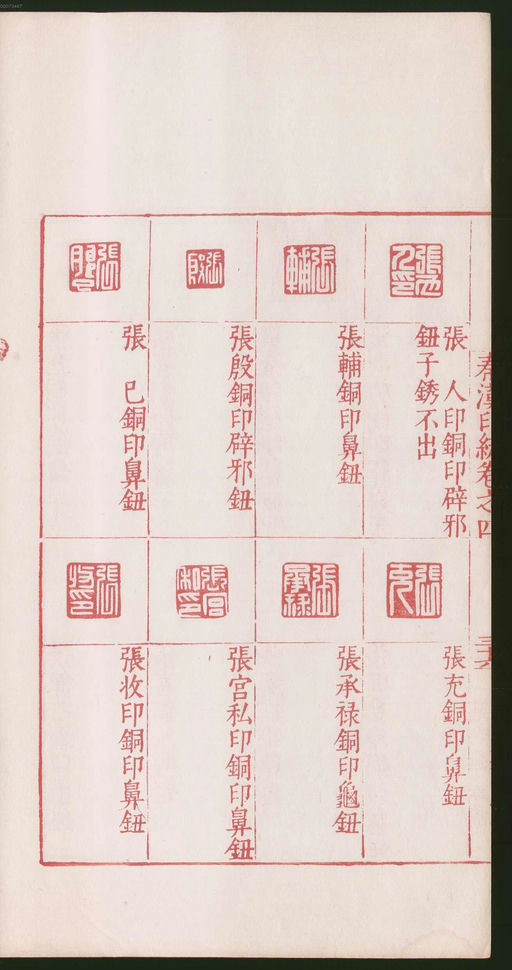 秦漢印統卷之四
三六
張 人印銅印辟邪
鈕子銹不出
張輔銅印鼻鈕
張殷銅印辟邪鈕
張 巳銅印鼻鈕
張充銅印鼻鈕
張承祿銅印龜鈕
張宮私印銅印鼻鈕
張牧印銅印鼻鈕